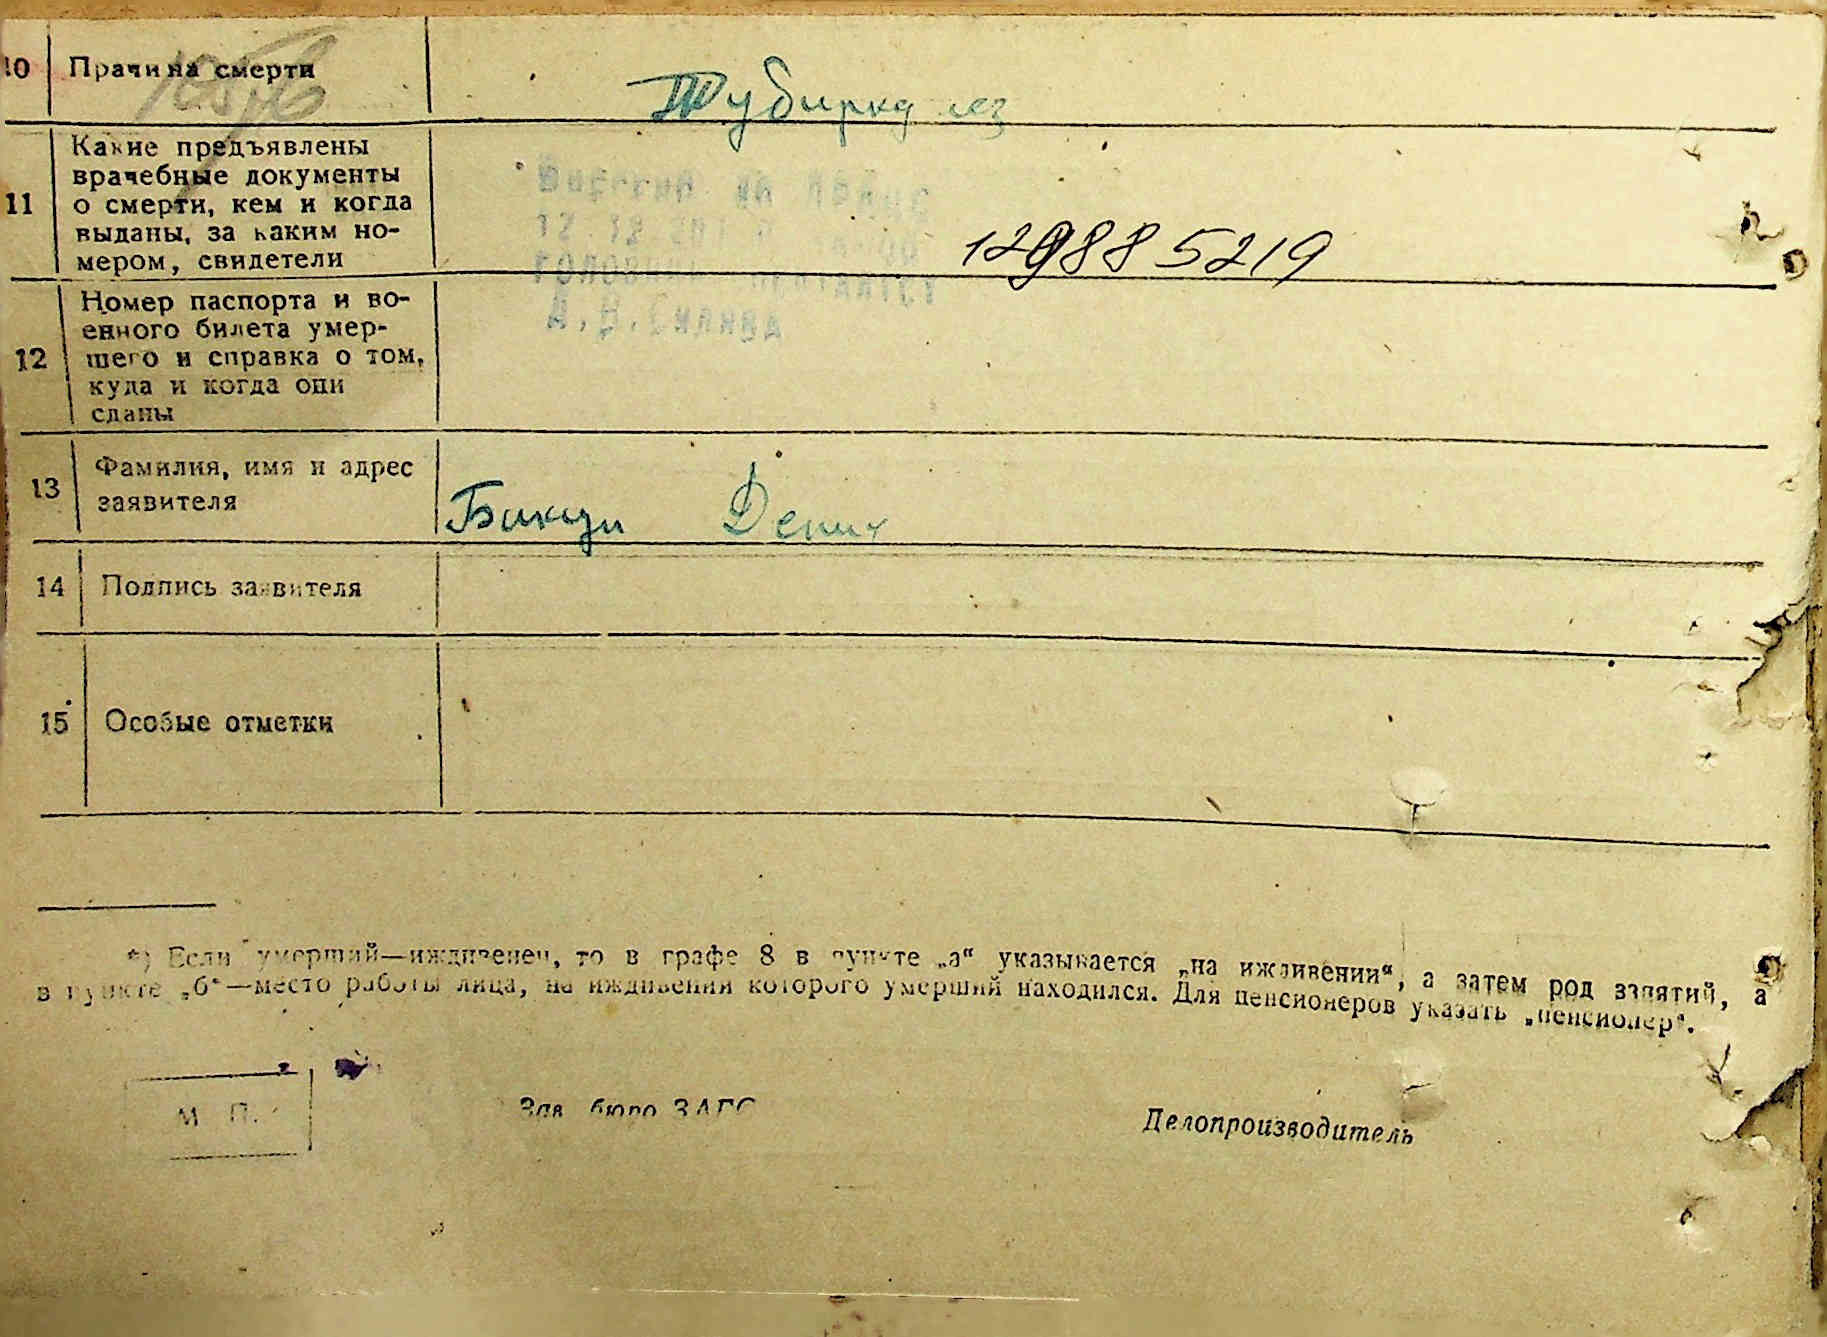 10 Причина смерти
Тубиркулез
11 Какие предъявлены
врачебные документы
о смерти, кем и когда
выданы, за каким но-
мером, свидетели
12 . 12 . 201
А.В.
5219
12 Номер паспорта и во-
енного билета умер-
шего и справка о том,
куда и когда они
сданы
13 Фамилия, имя и адрес
заявителя
Денис
14 Подпись заявителя
15 Особые отметки
*) Если умерший—иждивенец, то в графе 8 в пункте „а“ указывается „на иждивении“, а затем род занятий, а
в пункте „б“—место работы лица, на иждивении которого умерший находился. Для пенсионеров указать „пенсионер“.
М П.
Зав. бюро ЗАГС
Делопроизводитель